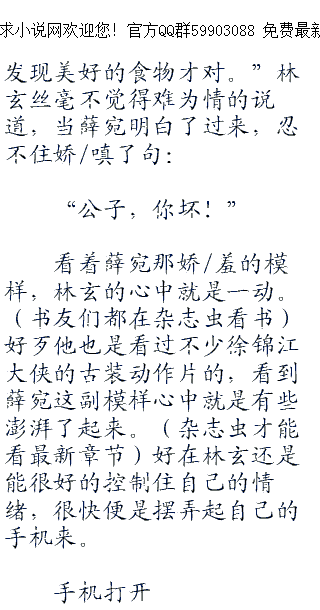 求小说网欢迎您！官方QQ群59903088 免费最新
发现美好的食物才对。”林
玄丝毫不觉得难为情的说
道，当薛宛明白了过来，忍
不住娇/嗔了句：
“公子，你坏！”
看着薛宛那娇/羞的模
样，林玄的心中就是一动。
（书友们都在杂志虫看书）
好歹他也是看过不少徐锦江
大侠的古装动作片的，看到
薛宛这副模样心中就是有些
澎湃了起来。（杂志虫才能
看最新章节）好在林玄还是
能很好的控制住自己的情
绪，很快便是摆弄起自己的
手机来。
手机打开